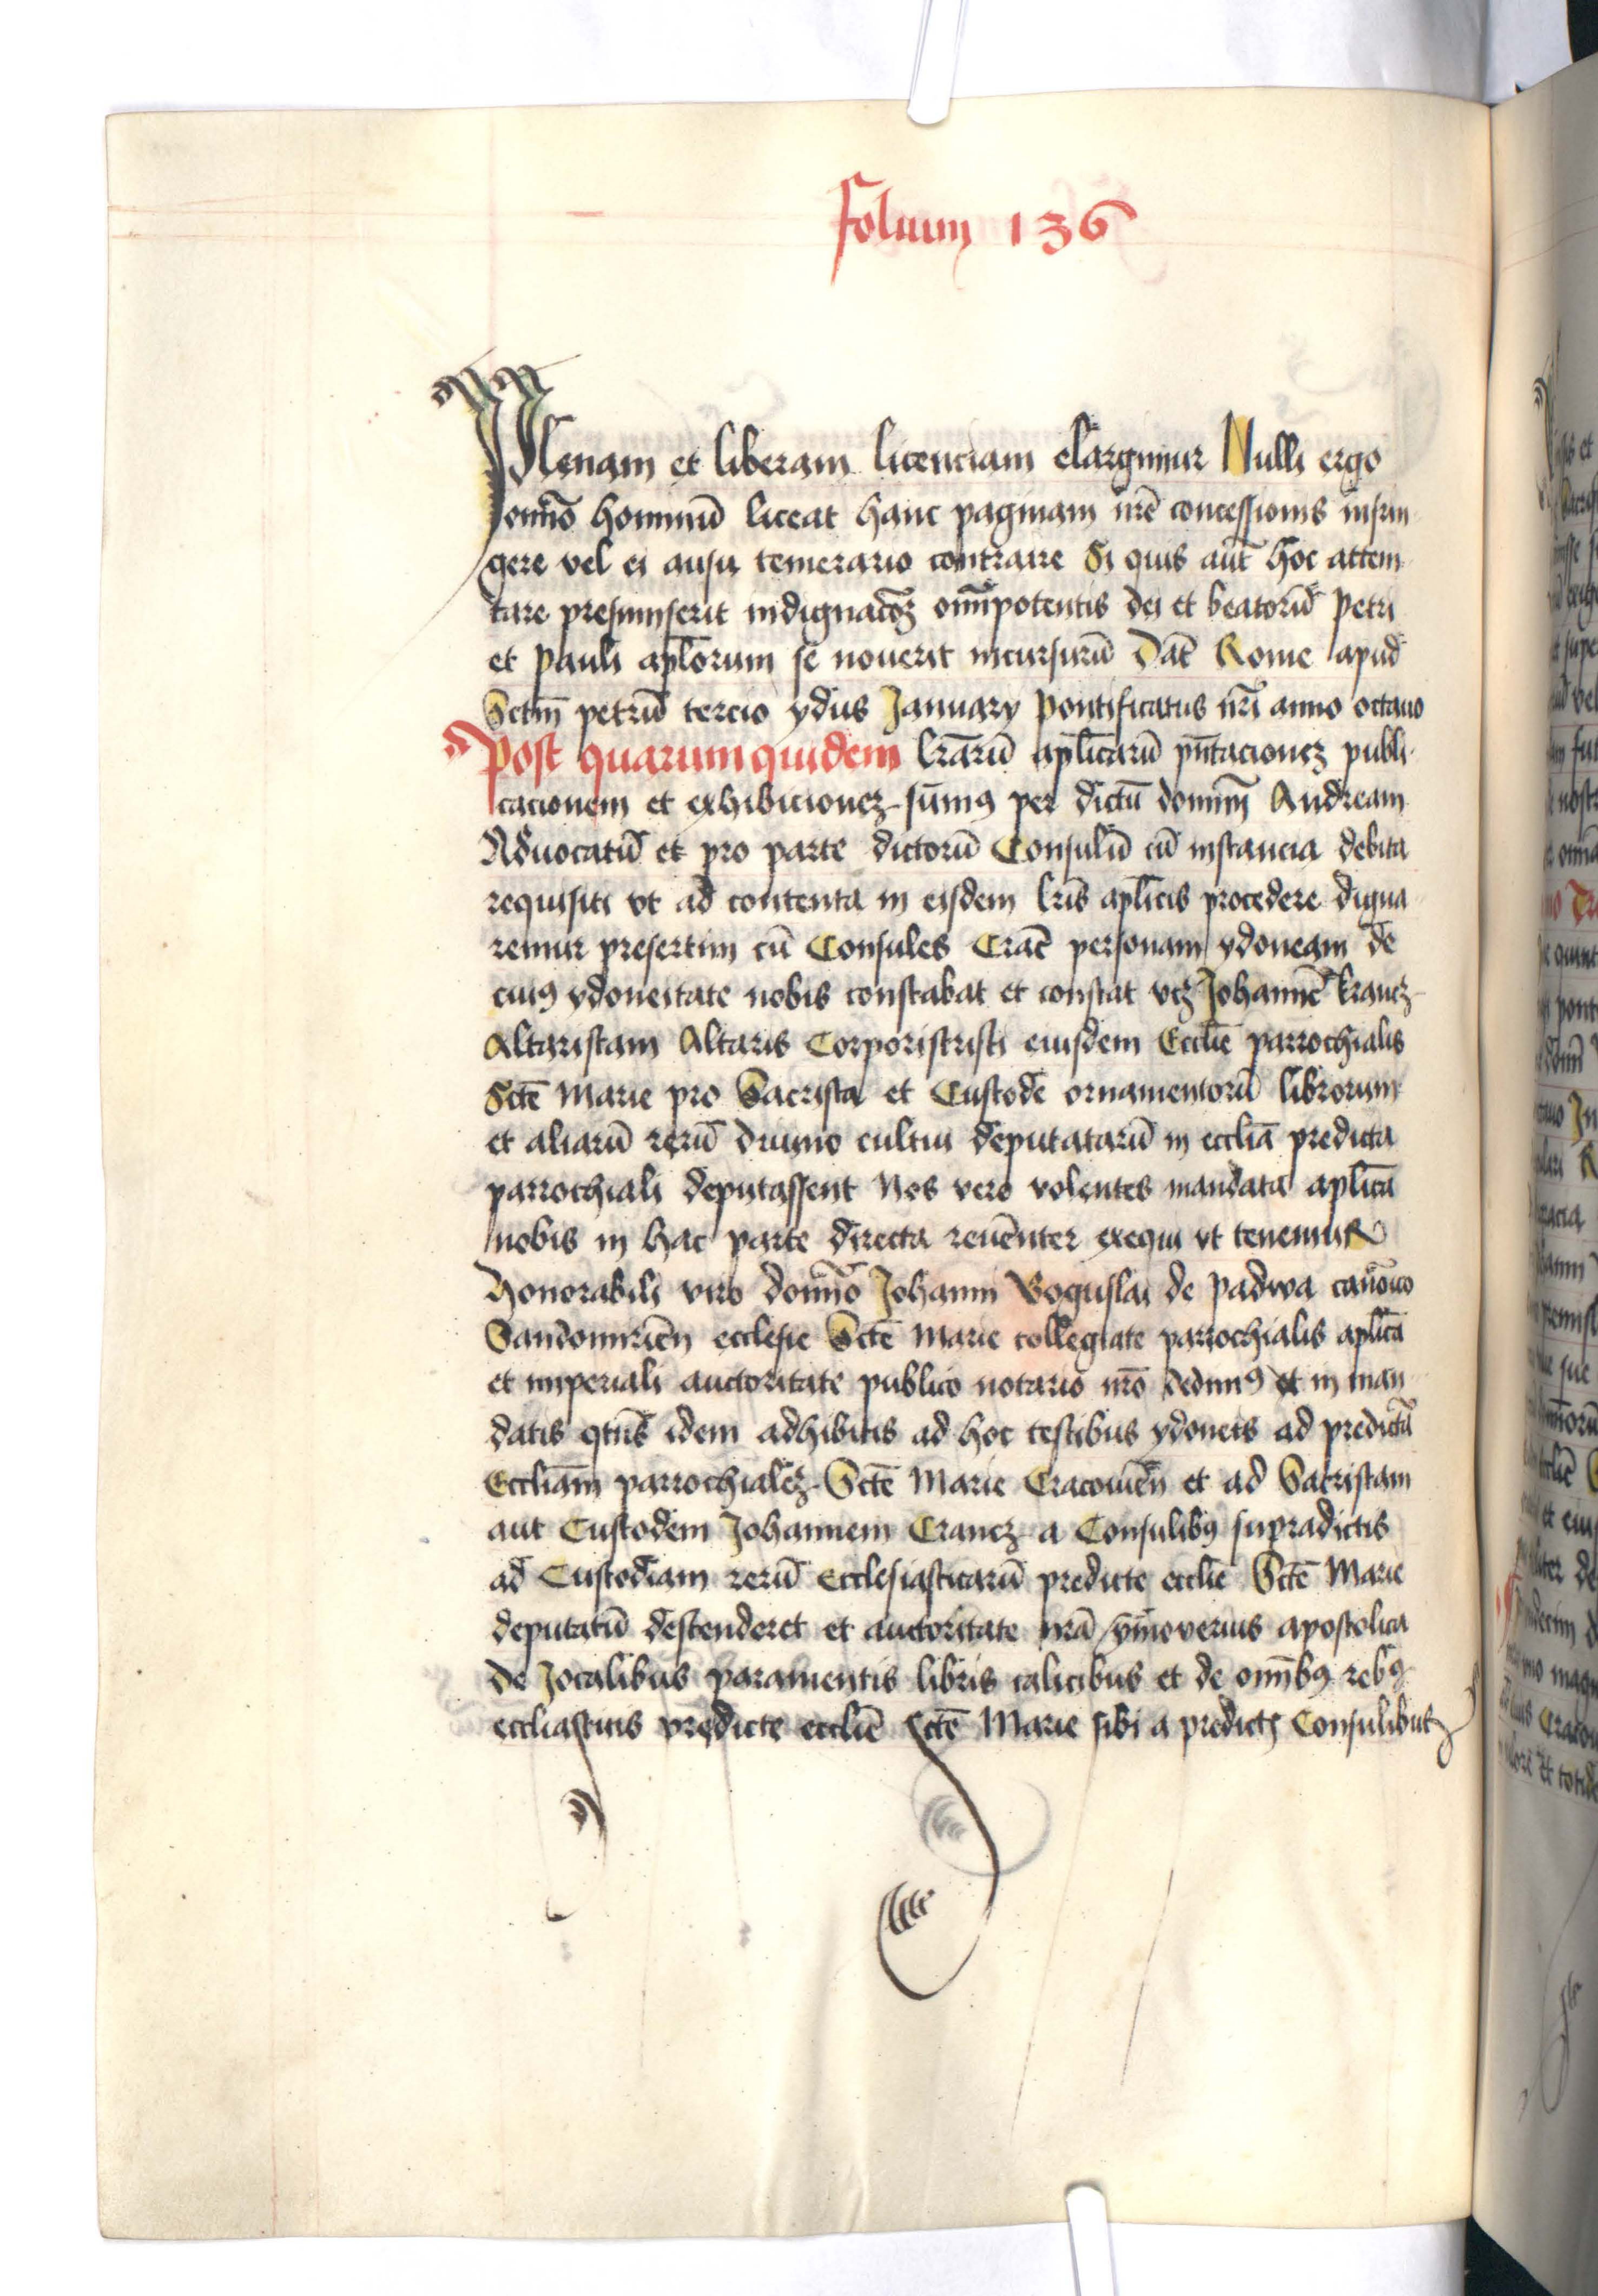 folium 136
Plenam et liberam licenciam elargimur Nulli ergo
omĩo hominũ liceat hanc paginam nr̃e concessionis infrin
gere vel ei ausu temerario contraire Si quis aut̃ hoc attem
tare presumserit indignacõꝫ om̃ipotentis dei et beatorũ Petri
et Pauli apl̃orum se noverit incursurũ Dat̃ Rome apud
Sctm̃ petrũ tercio ydus January Pontificatus nr̃i anno octauo
Post quarum quidem lr̃arũ apl̃icarũ pñtacionez publi
cacionem et exhibicionez sumꝰ per dictũ domiñ Andream
Aduocatũ et pro parte dictorũ Consulũ cũ instancia debita
requisiti vt ad contenta in eisdem lr̃is apl̃icis procedere digna
remur presertim cũ Consules Crac̃ personam ydoneam de
cuiꝰ ydoneitate nobis constabat et constat vcꝫ Johannẽ krancz
Altaristam Altaris Corporiscristi eiusdem Eccl̃ie parrochialis
Sct̃e Marie pro Sacrista et Custode ornamentorũ librorum
et aliarũ rerũ diuino cultui deputatarũ in eccl̃ia predicta
parrochiali deputassent Nos vero volentes mandata apl̃ica
nobis in hac parte directa reuẽnter exequi vt tenemur
Honorabili viro domĩo Johanni Boguslai de Padwa canõico
Sandomirieñ ecclesie Sct̃e Marie collegiate parrochialis apl̃ica
et imperiali auctoritate publico notario nr̃o dedimꝰ et in man
datis qt̃nꝰ idem adhibitis ad hoc testibus ydoneis ad predictã
Eccl̃iam parrochialeꝫ Sct̃e Marie Cracouieñ et ad Sacristam
aut Custodem Johannem Crancz a Consulibꝰ supradictis
ad Custodiam rerũ Ecclesiasticarũ predicte eccl̃ie Sct̃e Marie
deputatũ descenderet et auctoritate nr̃a ymoverius apostolica
de Jocalibus paramentis libris calicibus et de om̃ibꝰ rebꝰ
eccl̃iasticis predicte eccl̃ie Sct̃e Marie sibi a predictꝭ Consulibus